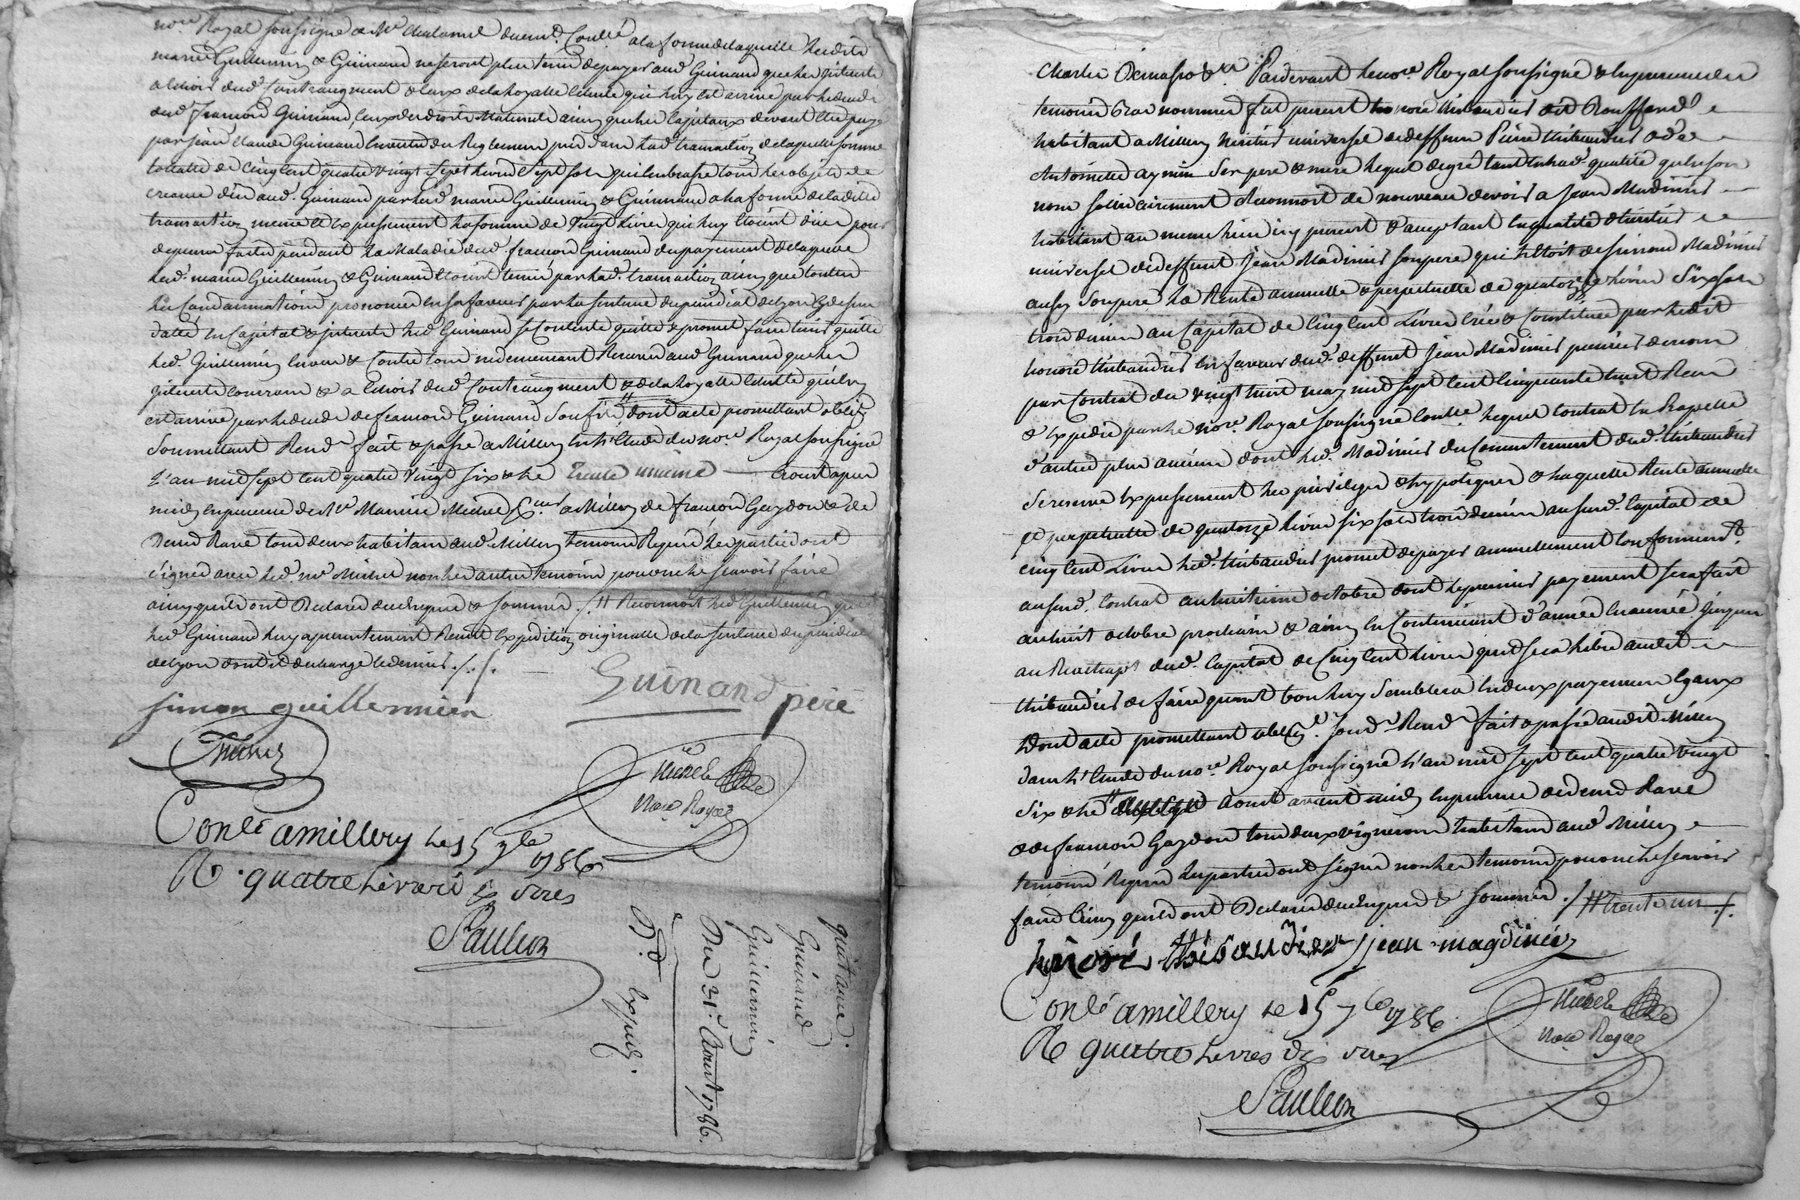 no.re Royal soussigné & M.e Chalamel a la forme de laquelle lesdits
marie Guillermin & Guinand ne seront plus tenus de payer aud. Guinand que les interets
a echoir
dud. françois Guinand, ceux des droits Maternels ainsy que les Capitaux devant etre payé
par jean Claude Guinand en vertu du Reglement pris dans lad. transaction de laquelle somme
totalle de Cinq cent quatre vingt sept livres sept sols qui embrasse tous les objets de
creance dus aud. Guinand par lesd. marie Guillermin & Guinand a la forme de ladite
transaction meme & expressement la somme de vingt livres qui luy etoient dües pour
depenses faites pendant la Maladie dud. françois Guinand du payement de laquelle
lesd. marie Guillermin & Guinand etoient tenus par lad. transaction ainsy que toutes
les Condamnations prononcées en sa faveur par la sentence du presidial de Lyon
datée en Capital & interets led. Guinand se Contente quitte & promet faire tenir quitte
led. Guillermin envers & Contre tous
interets courants & a echoir dud. Contraugment & de la Royalle
est arrivé par le deces de françois Guinand son fils // dont acte promettant oblig.
Soumettant Renon.r fait & passé a Millery en l'Etude du no.re Royal soussigné
L'an mil sept cent quatre vingt six & le trente unieme aoust apres
midy en presence de M.e Maurice Michel a Millery de françois Gaydon & de
Denis Ravé tous deux habitans aud. Millery temoins Requis les parties ont
signé avec led. m.e Michel non les autres temoins pour ne le scavoir faire
ainsy qu'ils ont Declaré de ce enquis & sommés ./. // Reconnoit led. Guillermin que
led. Guinand luy a presentement Remis l'expedition originalle de la sentence du presidial
de Lyon dont il decharge ce dernier ./. /.
Guinand père
simon guillermien
No.re Royal
Con.lé a millery le 15 7.bre 1786
R. quatre livres dix sols
Saulion
quittance
Guinand
Guillermin
Du 31.e Aoust 1786.
D.d exped.
Pardevant le no.re Royal soussigné & en presence des
temoins bas nommés fut present honoré thibaudier dit Rouffard
habitant a Millery heritier universel de deffunt Pierre thibaudier & de
Antoinette aymin ses pere & mere lequel de gré tant en lad. qualité qu'en son
nom solidairement Reconnoit de nouveau devoir a jean Madinier
habitant au meme lieu icy present & acceptant en qualité d'heritier
universel de deffunt jean Madinier son pere qui l'etoit de simond Madinier
aussy son pere la Rente annuelle & perpetuelle de quatorze livres six sols
trois deniers au Capital de Cinq cent Livres créée & Constituée par ledit
honoré thibaudier en faveur dud. deffunt jean Madinier premier de nom
par Contrat du vingt huit may mil sept cent Cinquante huit Reçu
& expedié par le no.re Royal soussigné lequel Contrat en Rapelle
d'autres plus anciens dont led. Madinier du Consentement dud. thibaudier
se reserve expressement les privileges & hypoteques & laquelle Rente annuelle
& perpetuelle de quatorze livres six sols trois deniers au susd. Capital de
cinq cent Livres led. thibaudier promet de payer annuellement Conformement
au susd. Contrat au huitieme octobre dont le premier payement sera fait
au huit octobre prochain & ainsy en Continuant d'année en année jusques
au Reachapt dud. Capital de Cinq cent livres qu'il sera libre audit
thibaudier de faire quant bon luy semblera en deux payemens egaux
Dont acte promettant oblig. soum. Renon. fait & passé audit Millery
dans l'Etude du no.re Royal soussigné L'an mil sept cent quatre vingt
six & le // aoust avant midy en presence de denis Ravé
& de francois Gaydon tous deux vignerons habitans aud. Millery
temoins Requis les parties ont signé non les temoins pour ne le scavoir
faire ainsy qu'ils ont Declaré de ce enquis & sommés ./. // trente un ./.
honoré thibaudier jean magdinier
Con.lé a millery le 15 7.bre 1786
R. quatre livres dix sols
No.re Royal
Saulion